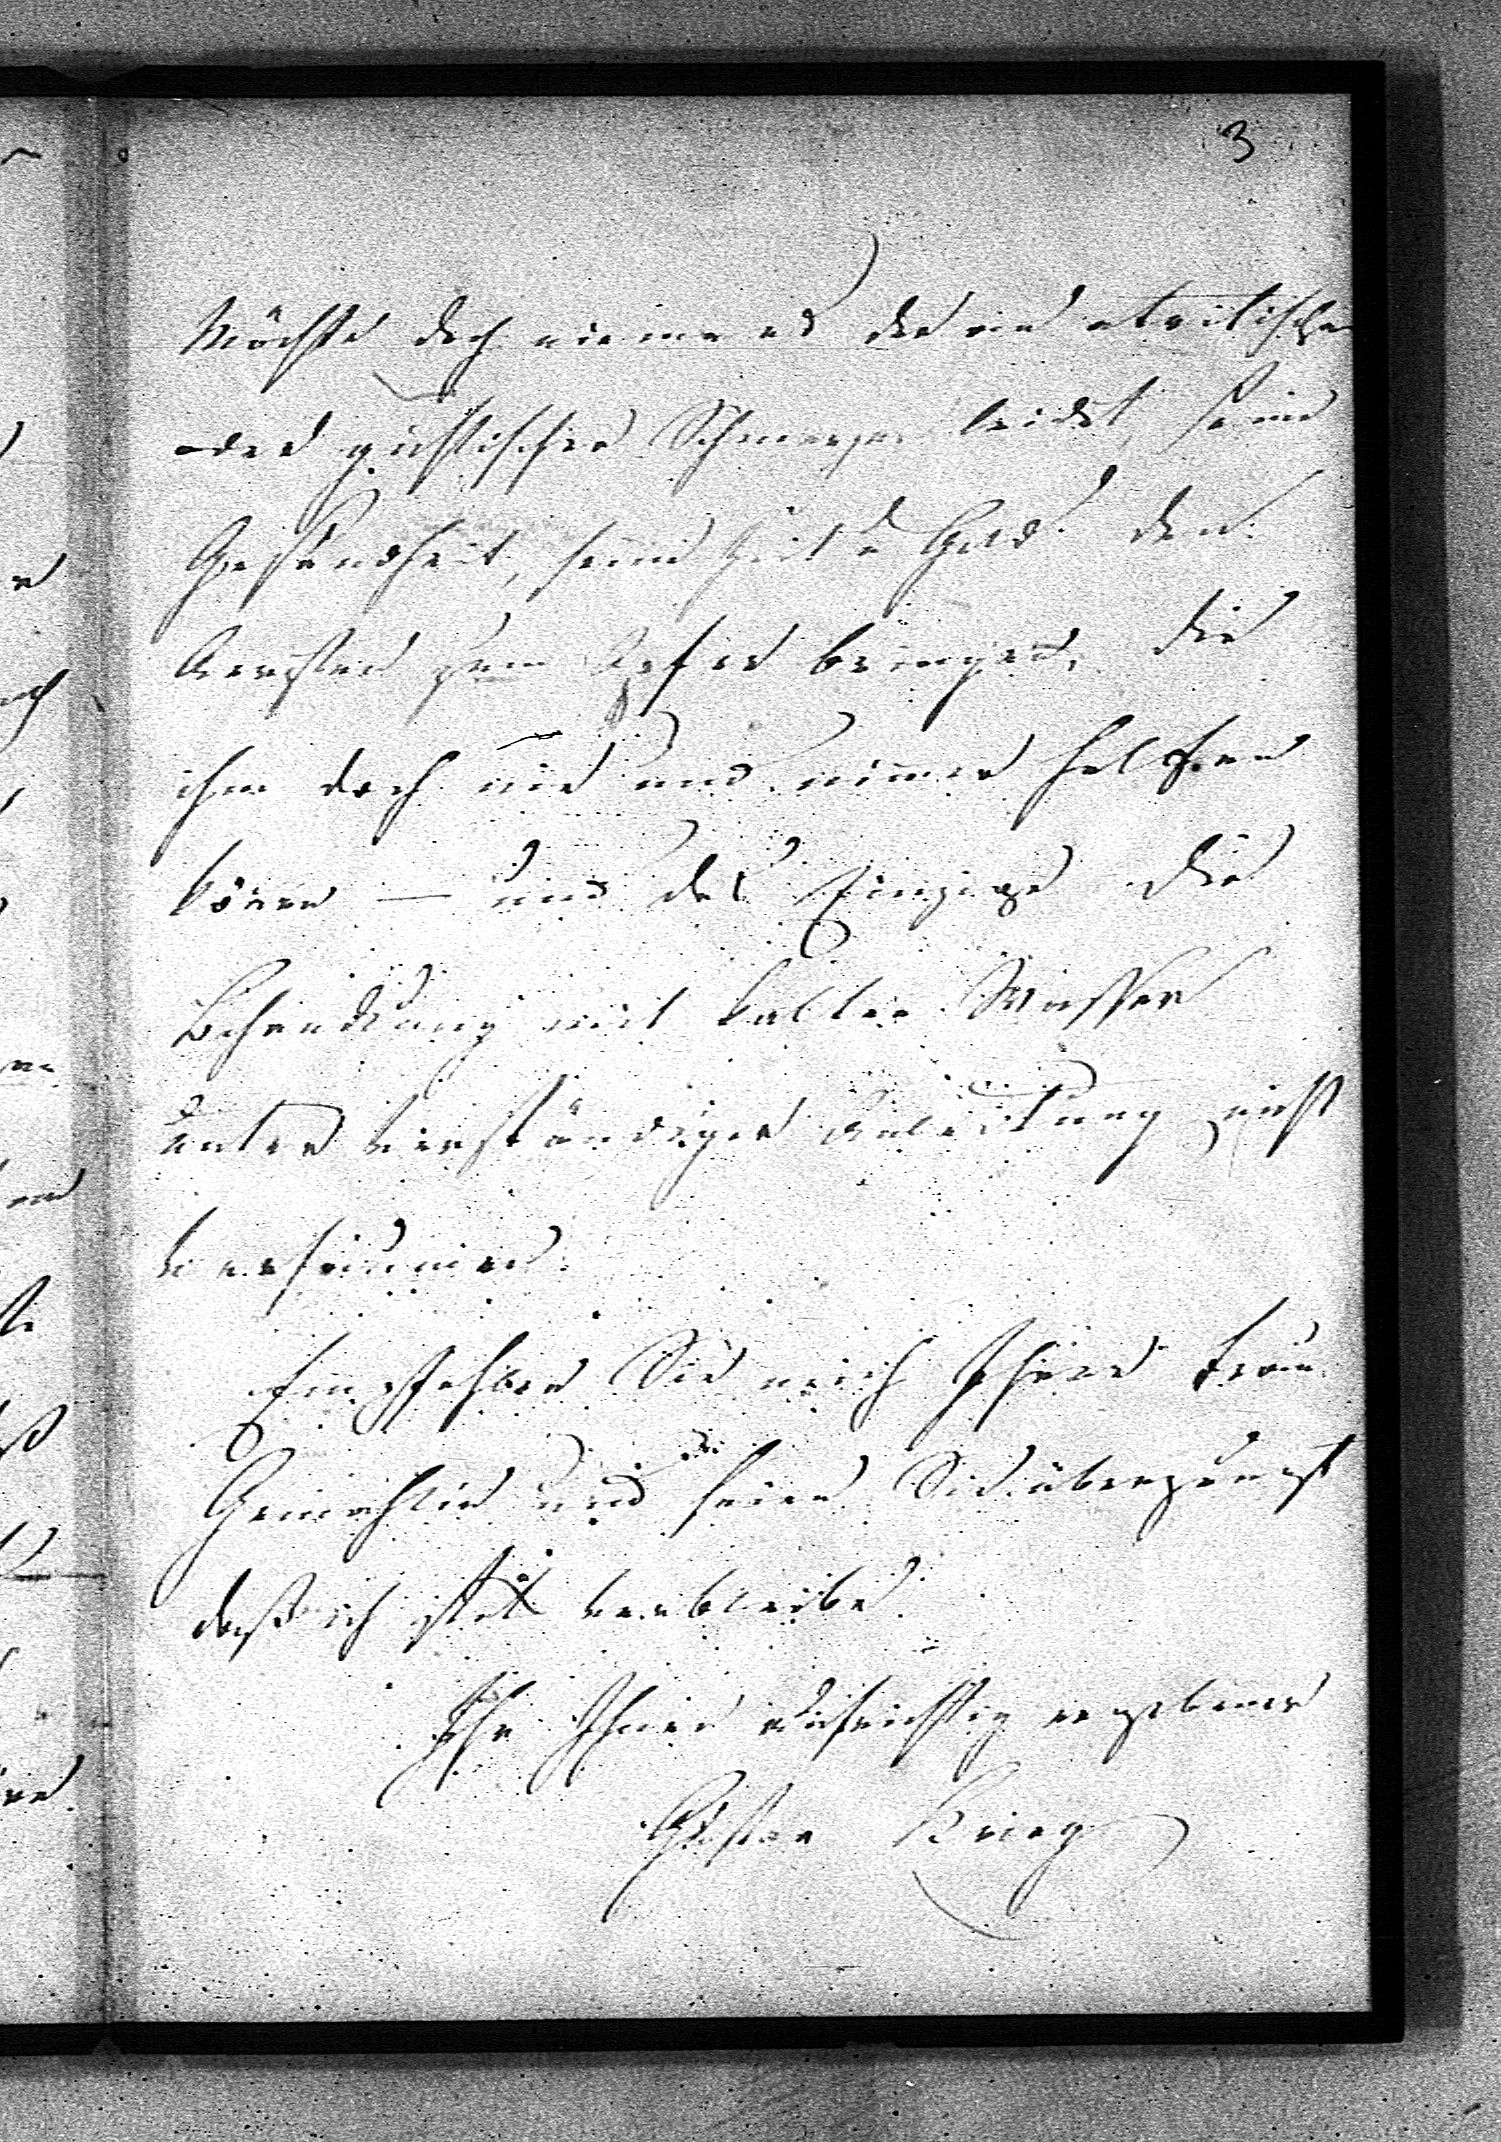 3
Möchte doch niemand der an atritischen
oder gichtischen Schmerzen leidet, seine
Gesundheit, seine Zeit u Geld den
Aerzten zum Opfer bringen, die
ihm doch nie und nimmer helfen
könen — und das Einzige die
Behandlung mit kalten Wasser
unter verständiger Anleitung nicht
versäumen.
Empfehlen Sie mich Ihrer Frau
Gemahlin und seien Sie überzeugt
daß ich stets verbleibe
Ihr Ihnen aufrichtig ergebener
Gustav Krieg